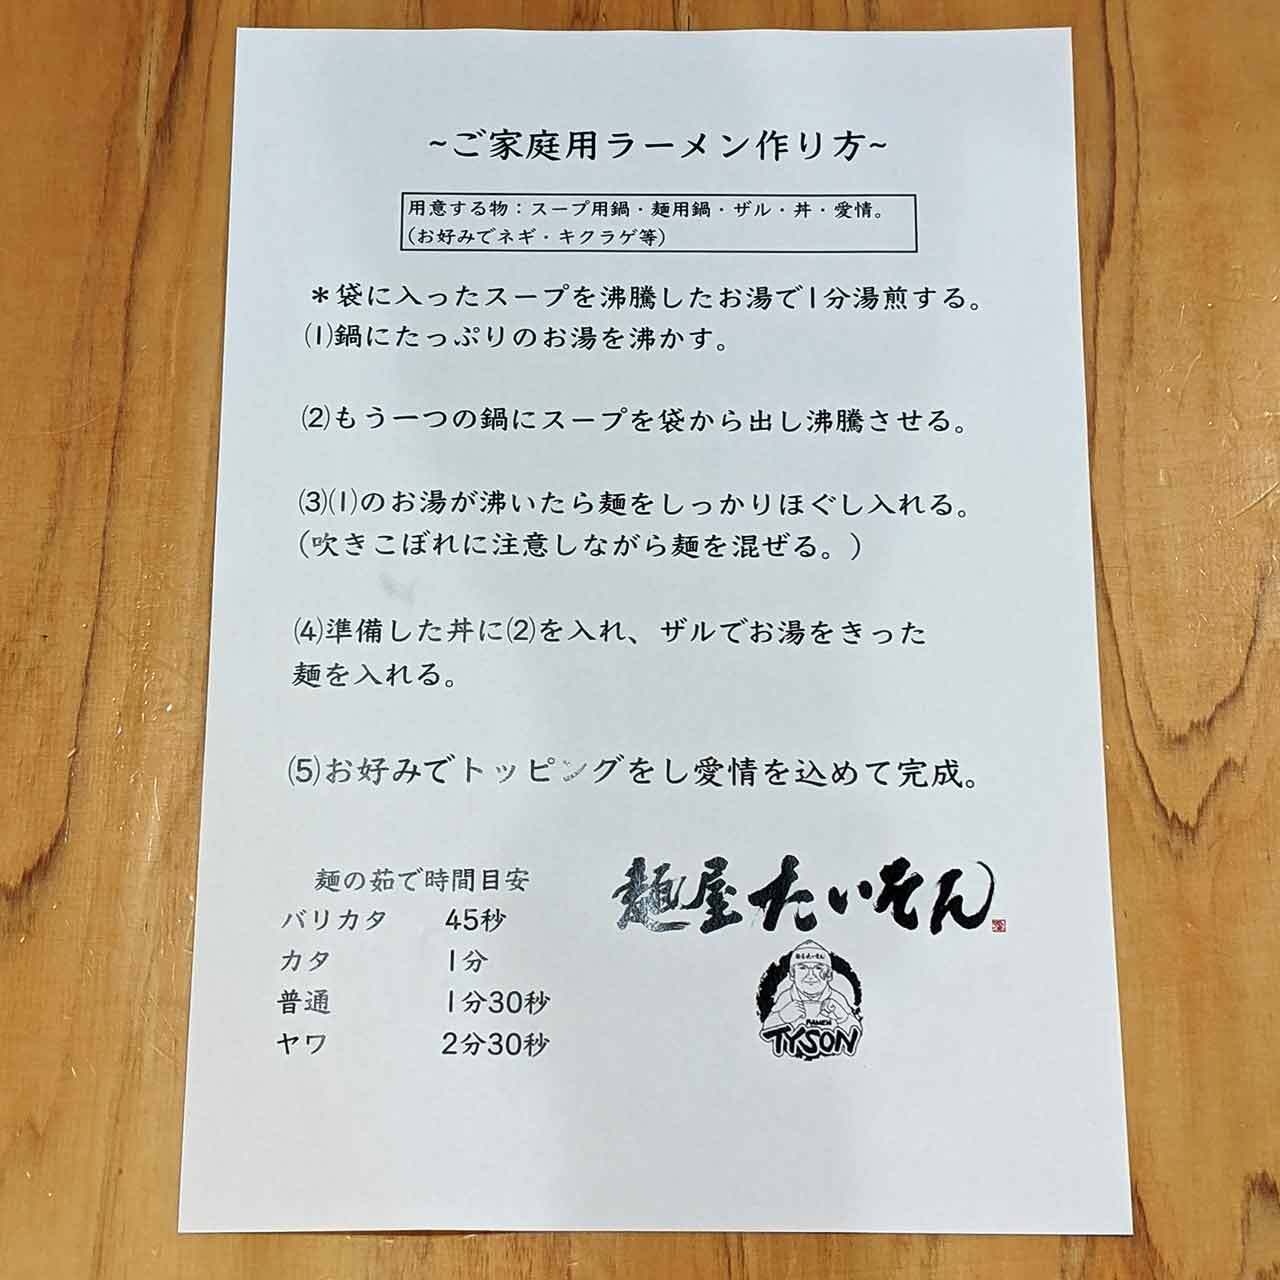 ~ご家庭用ラーメン作り方~
用意する物：スープ用鍋・麺用鍋・ザル・丼・愛情。
(お好みでネギ・キクラゲ等)
＊袋に入ったスープを沸騰したお湯で1分湯煎する。
⑴鍋にたっぷりのお湯を沸かす。
⑵もう一つの鍋にスープを袋から出し沸騰させる。
⑶⑴のお湯が沸いたら麺をしっかりほぐし入れる。
(吹きこぼれに注意しながら麺を混ぜる。)
⑷準備した丼に⑵を入れ、ザルでお湯をきった
麺を入れる。
⑸お好みでトッピングをし愛情を込めて完成。
麺の茹で時間目安
バリカタ 45秒
カタ 1分
普通 1分30秒
ヤワ 2分30秒
麺屋たいそん
麺屋たいそん
RAMEN
TYSON